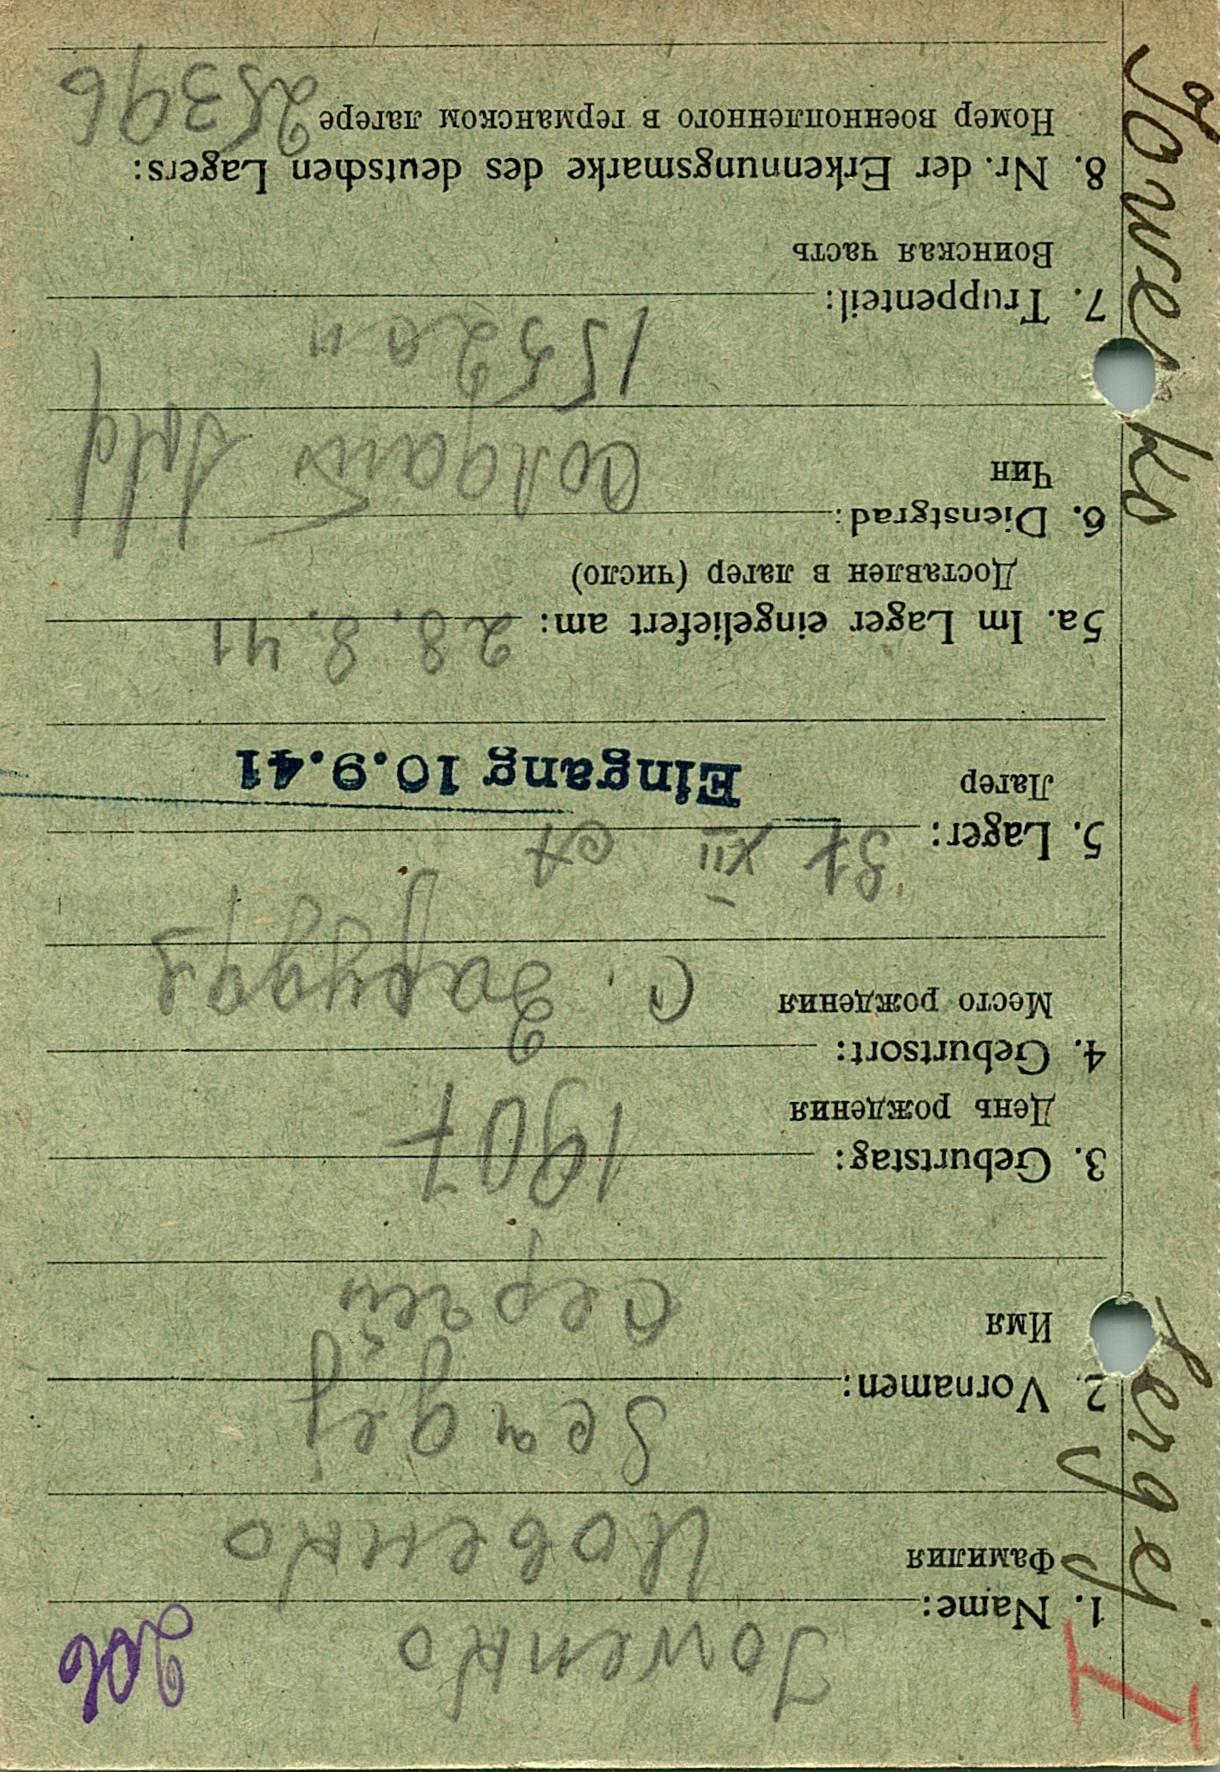 206
I
1. Name: Jowenko
Фамилия Иовенко
2. Vornamen: Sergej
Имя Сергей
3. Geburtstag: 1907
День рождения
4. Geburtsort:
Место рождения с.
5. Lager: St XII A
Лагер
Eingang 10.9.41
5a. Im Lager eingeliefert am: 28.8.41
Доставлен в лагер (число)
6. Dienstgrad: Солдат Sold
Чин
7. Truppenteil:
Воинская часть
8. Nr. der Erkennungsmarke des deutschen Lagers:
Номер военнопленного в германском лагере 25396
Sergej
Jowenko